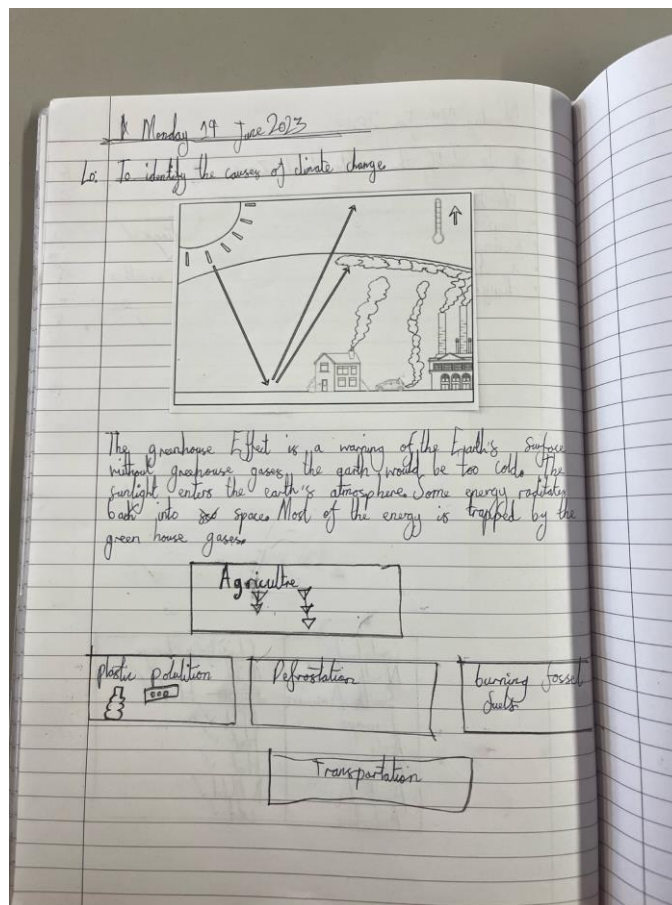 Monday 19 June 2023
Lo: To identify the causes of climate change
The greenhouse Effect is a warning of the Earth's surface
without greehouse gases the earth would be too cold. The
sunlight enters the earth's atmosphere. Some energy raditates
back into space. Most of the energy is trapped by the
green house gases.
Agricultre
plastic polulition
Defrostation
burning fossel
fuels
Transportation